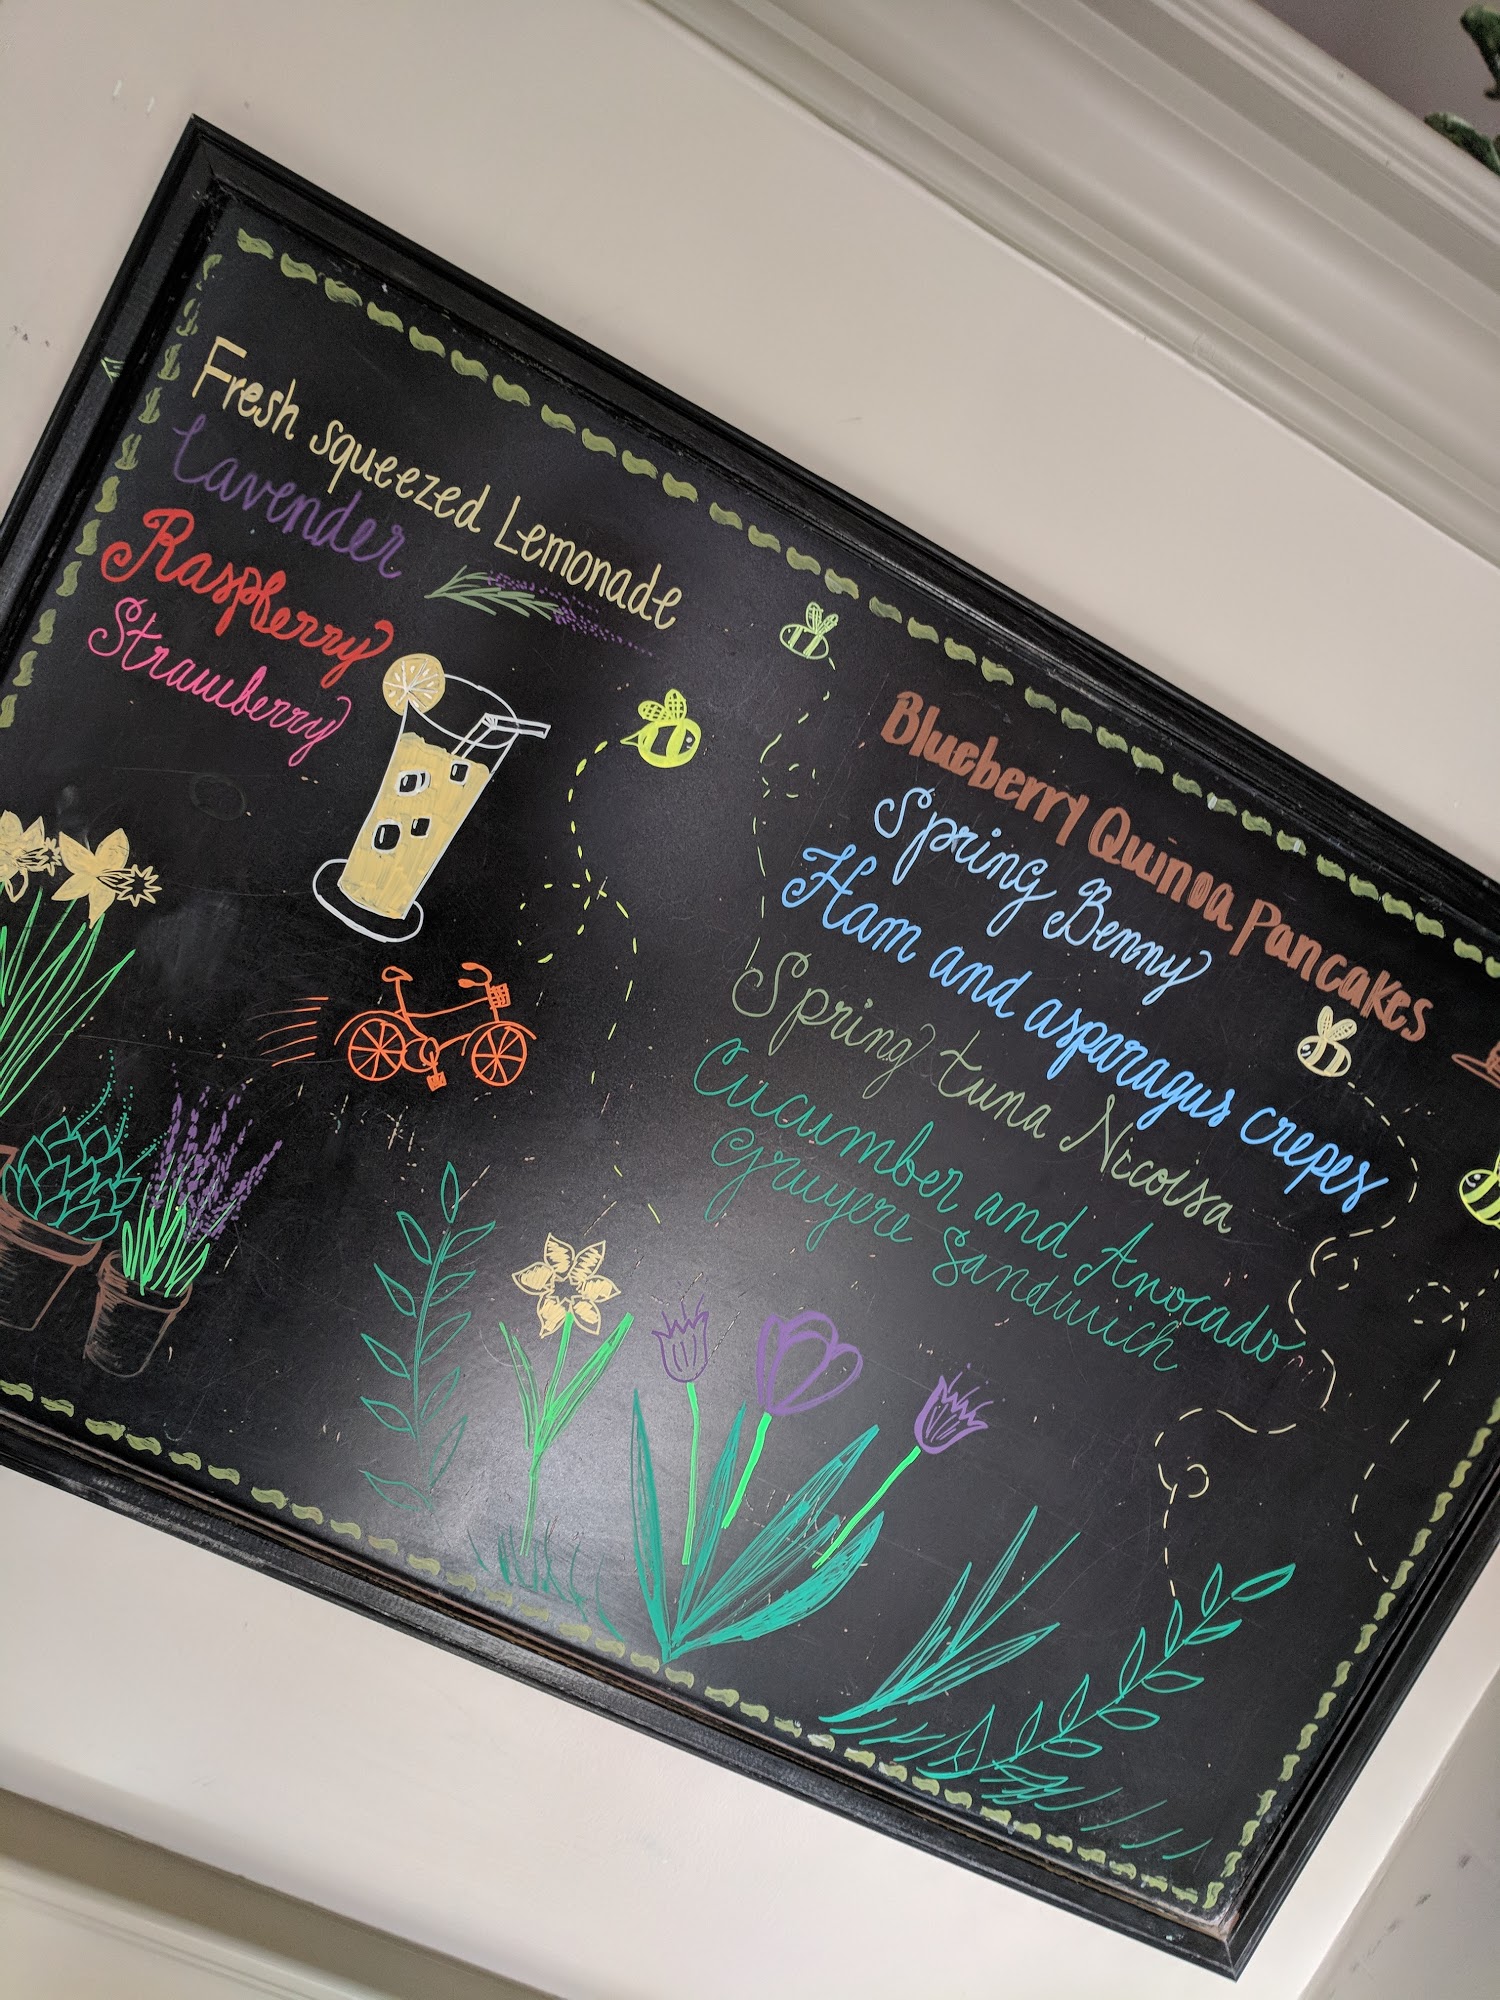 Fresh squeezed Lemonade
Lavender
Raspberry
Strawberry
Blueberry Quinoa Pancakes
Spring Benny
Ham and asparagus crepes
Spring tuna Nicoisa
Cucumber and Avocado
gruyere Sandwich